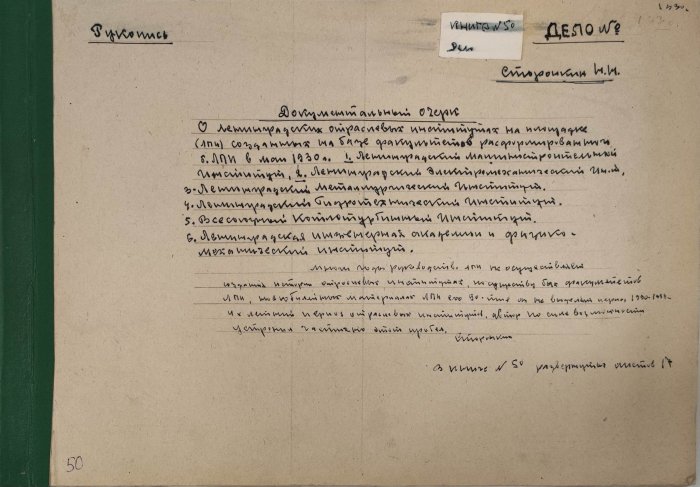 1930г.
Рукопись
КНИГА №50
Дело
ДЕЛО №
Сторонкин Н.Н.
Документальный очерк
О ленинградских отраслевых институтах на площадке
(ЛПИ) созданных на базе факультетов расформированного
б. ЛПИ в мае 1930г. 1. Ленинградский Машиностроительный
Институт, 2. Ленинградский Электромеханический Ин.м,
3. Ленинградский Металлургический Институт.
4. Ленинградский Гидротехнический Институт.
5. Всесоюзный Котлотурбинный Институт.
6. Ленинградская инженерная академии и физико-
механический институт.
Многие годы руководств. ЛПИ не осуществляем
создания истории отраслевых институтов, по существу быв. факультетов
ЛПИ, юбилейных материалах ЛПИ его
4х летний период отраслевых институтов, автор по силе возможности
устранил частично этот пробел.
Сторонкин
В книге № 50 развернутых листов
50